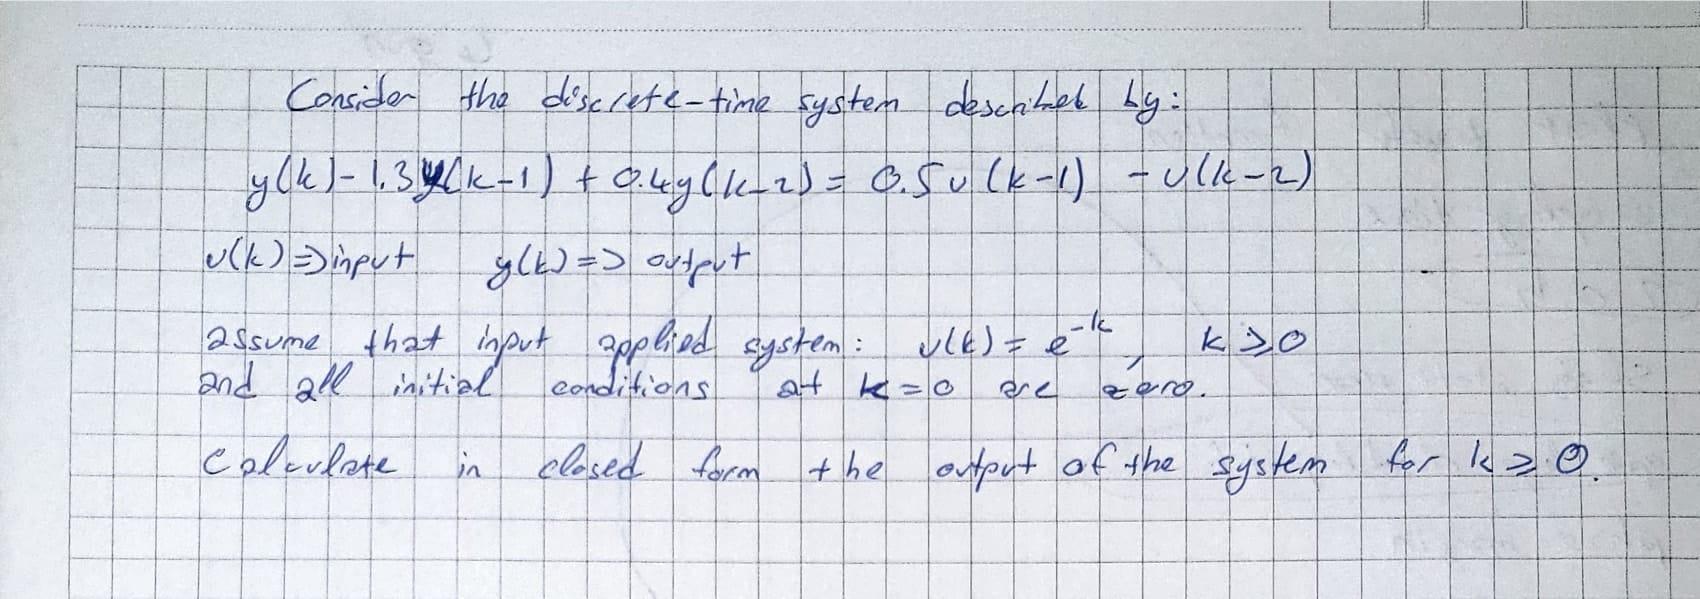 Consider the discrete-time system described by:
y(k)-1.3y(k-1) + 0.4y(k-2) = 0.5u(k-1) - u(k-2)
u(k) => input y(k) => output
assume that input applied system: u(k) = e^-k, k ≥ 0
and all initial conditions at k=0 are zero.
Calculate in closed form the output of the system for k ≥ 0.